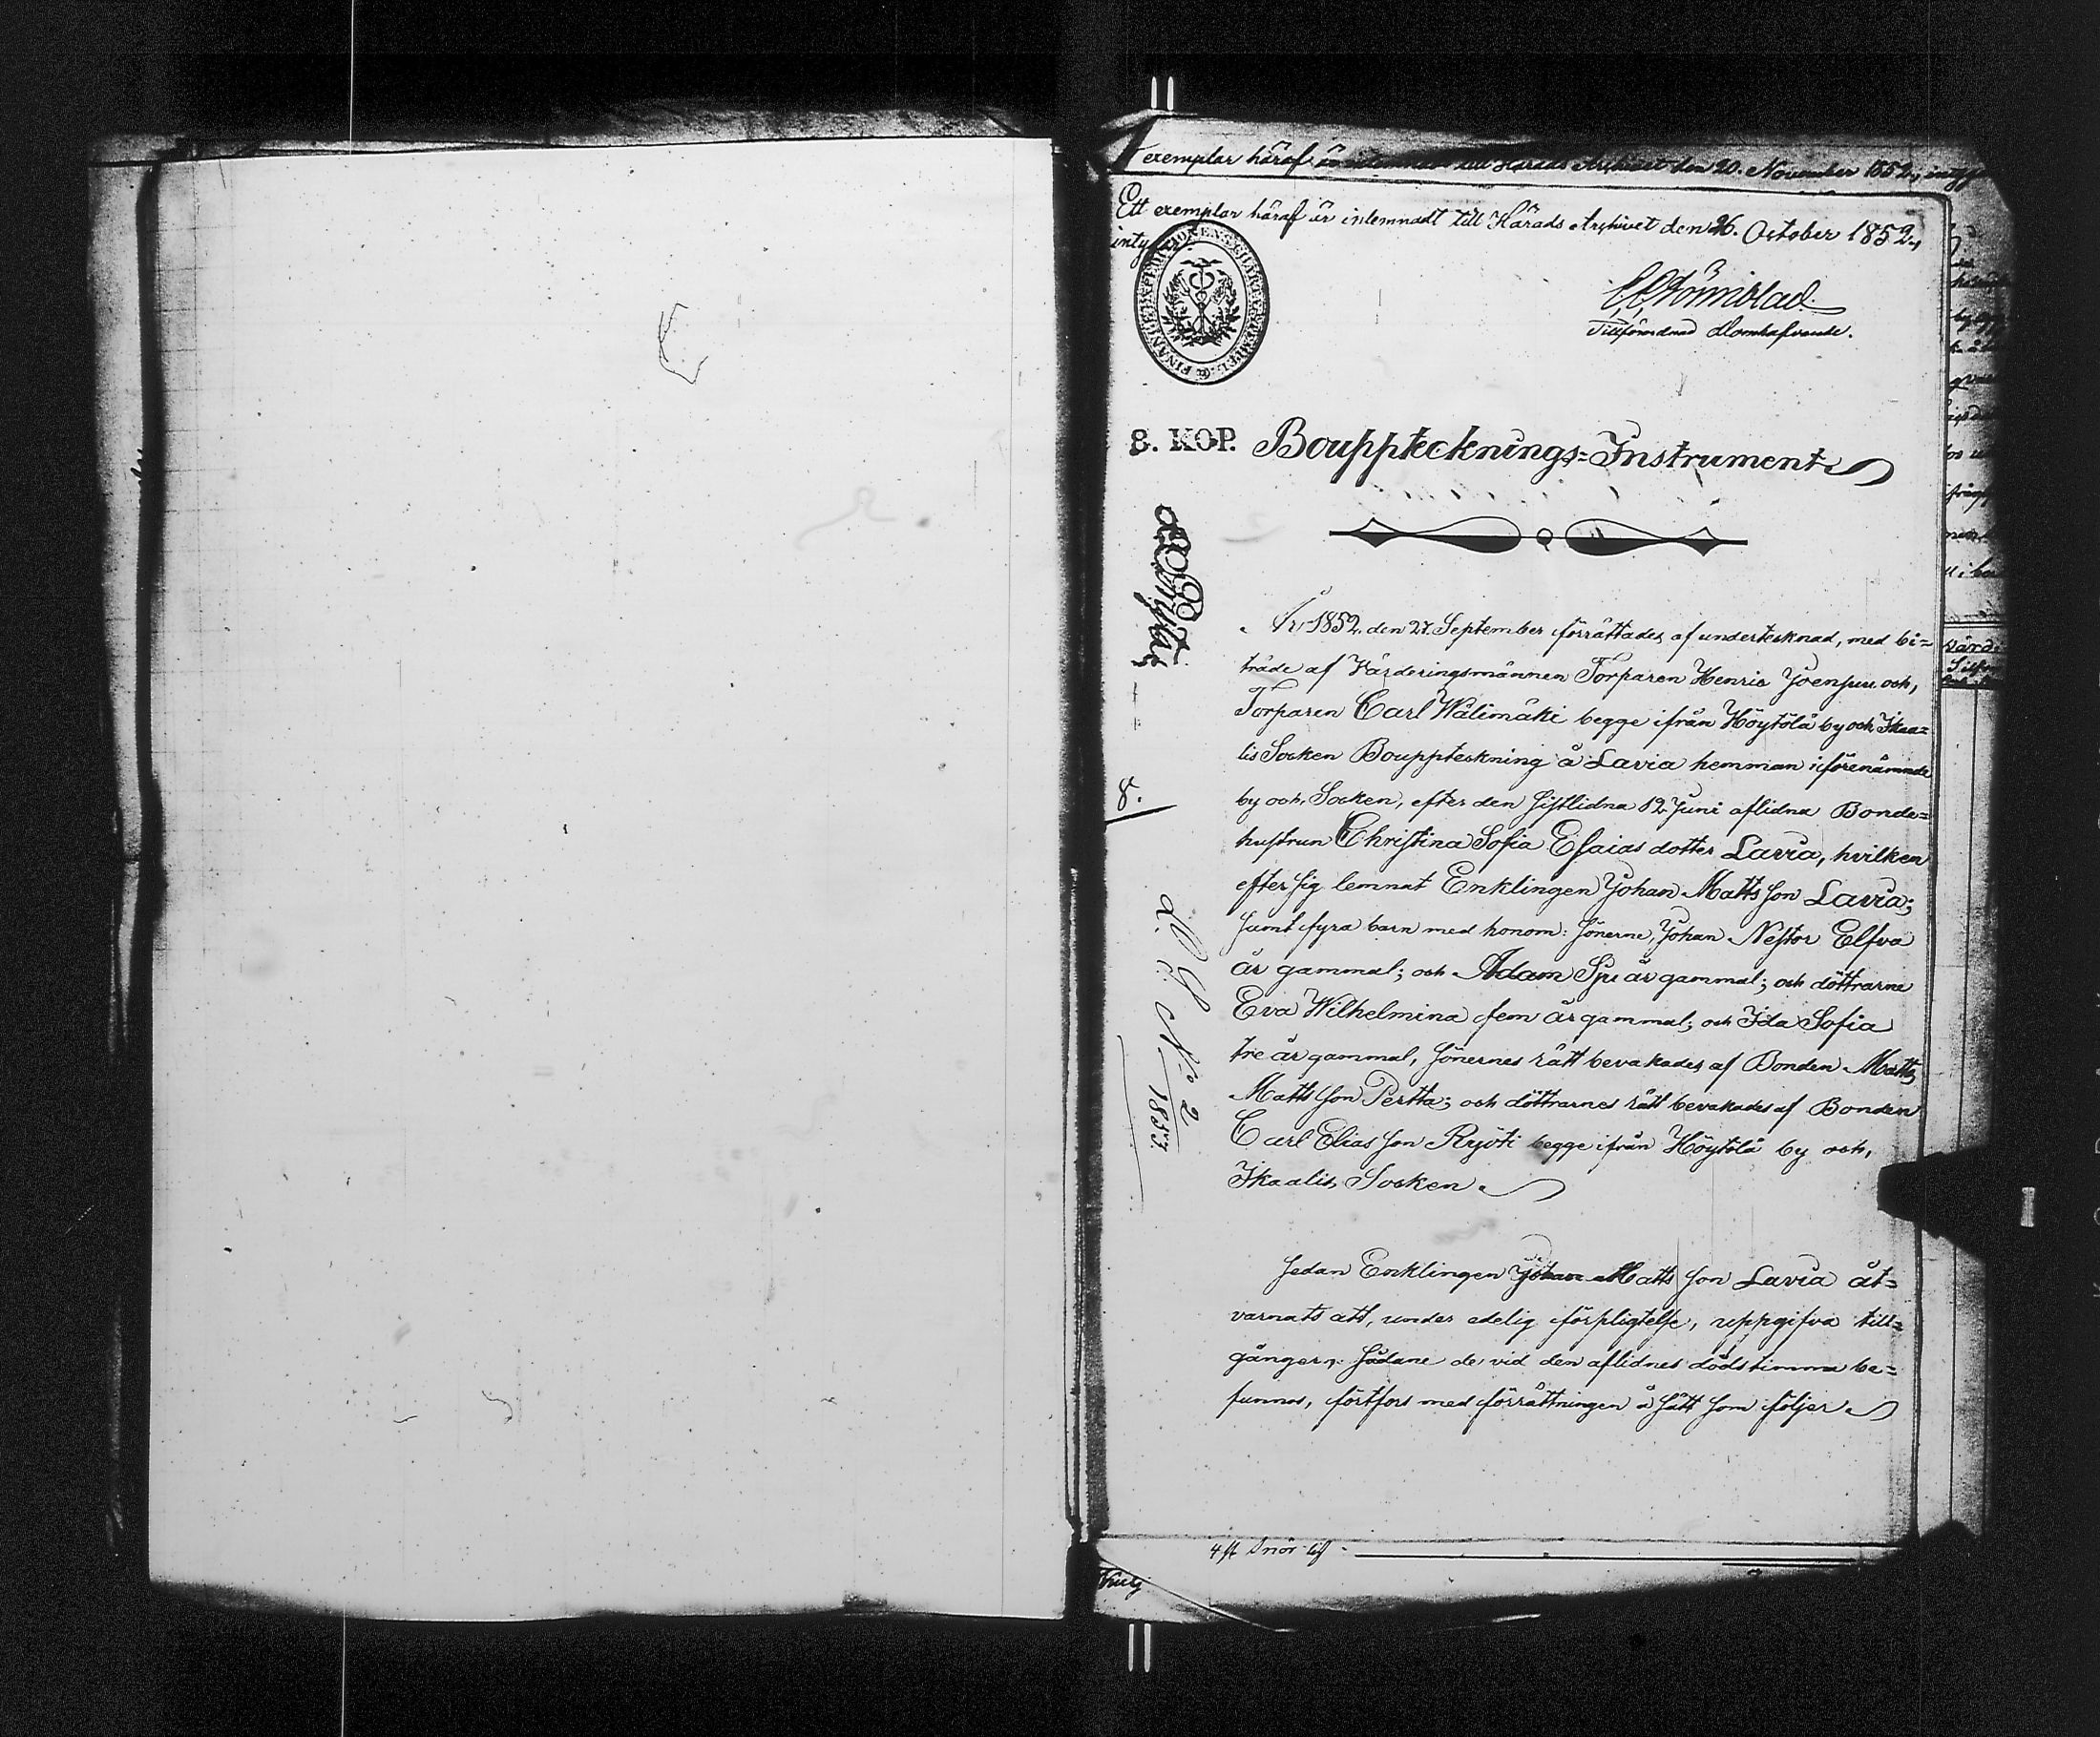 exemplar häraf är inlemnadt till Härads Archivet den 20. November 1852,
Ett exemplar häraf är inlemnadt till Härads Archivet den 26. October 1852,
intygar
Tillförordnad Domhafvande.
8. KOP. Bouppteknings=Instrument
År 1852. den 27. September förrättades af undertecknad, med bi=
träde af Värderingsmännen Torparen Henric Joensuu och,
Torparen Carl Wälimäki begge ifrån Höytölä by och Ikaa=
lis Socken Bouppteckning å Lavia hemman i förenämnde
by och, Socken, efter den sistlidna 12 Juni aflidna Bonde=
hustrun Christina Sofia Esaias dotter Lavia, hvilken
efter sig lemnat Enklingen Johan Matts son Lavia;
samt fyra barn med honom: sönerne, Johan Nestor Elfva
år gammal; och Adam Sju år gammal; och döttrarne
Eva Wilhelmina fem år gammal; och Ida Sofia
tre år gammal, sönernes rätt bevakades af Bonden Matts
Matts son Pertta; och döttrarnes rätt bevakades af Bonden
Carl Elias son Ryöti begge ifrån Höytölä by och,
Ikaalis Socken.
8.
N:o 2
1853.
Sedan Enklingen Johan Matts son Lavia åt=
varnats att, under edelig förpligtelse, uppgifva till=
gångern sådane de vid den aflidnes dödstimma be=
funnos, fortfors med förrättningen å sätt som följer
4 st Snör